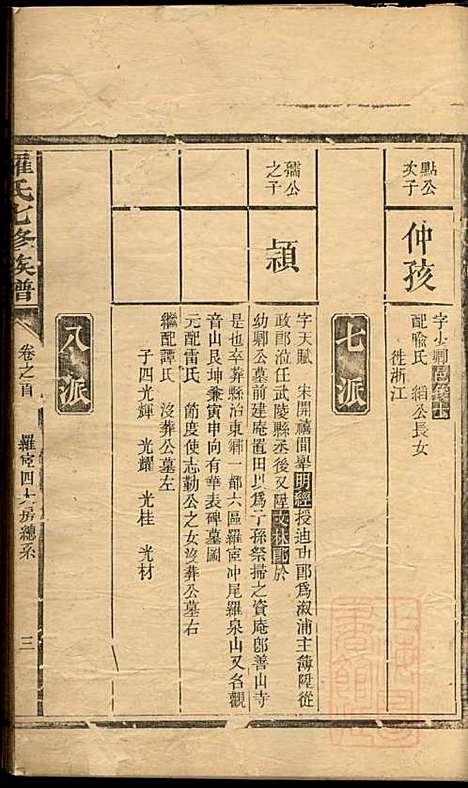 點公
次子
仲孩
字少卿邑修士
配喩氏 縚公長女
徙浙江
七派
孺公
之子
頴
字天賦 宋開禧間舉明經授迪功郎爲溆浦主簿陞從
政郎涖任武陵縣丞後又陞文林郎於
幼卿公墓前建庵置田以爲子孫祭掃之資庵卽善山寺
是也卒葬縣治東鄉一都六區羅官冲尾羅泉山又名觀
音山艮坤兼寅申向有華表碑墓圖
元配雷氏 節度使志勤公之女沒葬公墓右
繼配譚氏 沒葬公墓左
子四光輝 光耀 光桂 光材
八派
羅氏七修族譜
卷之首
羅官四大房總系
三